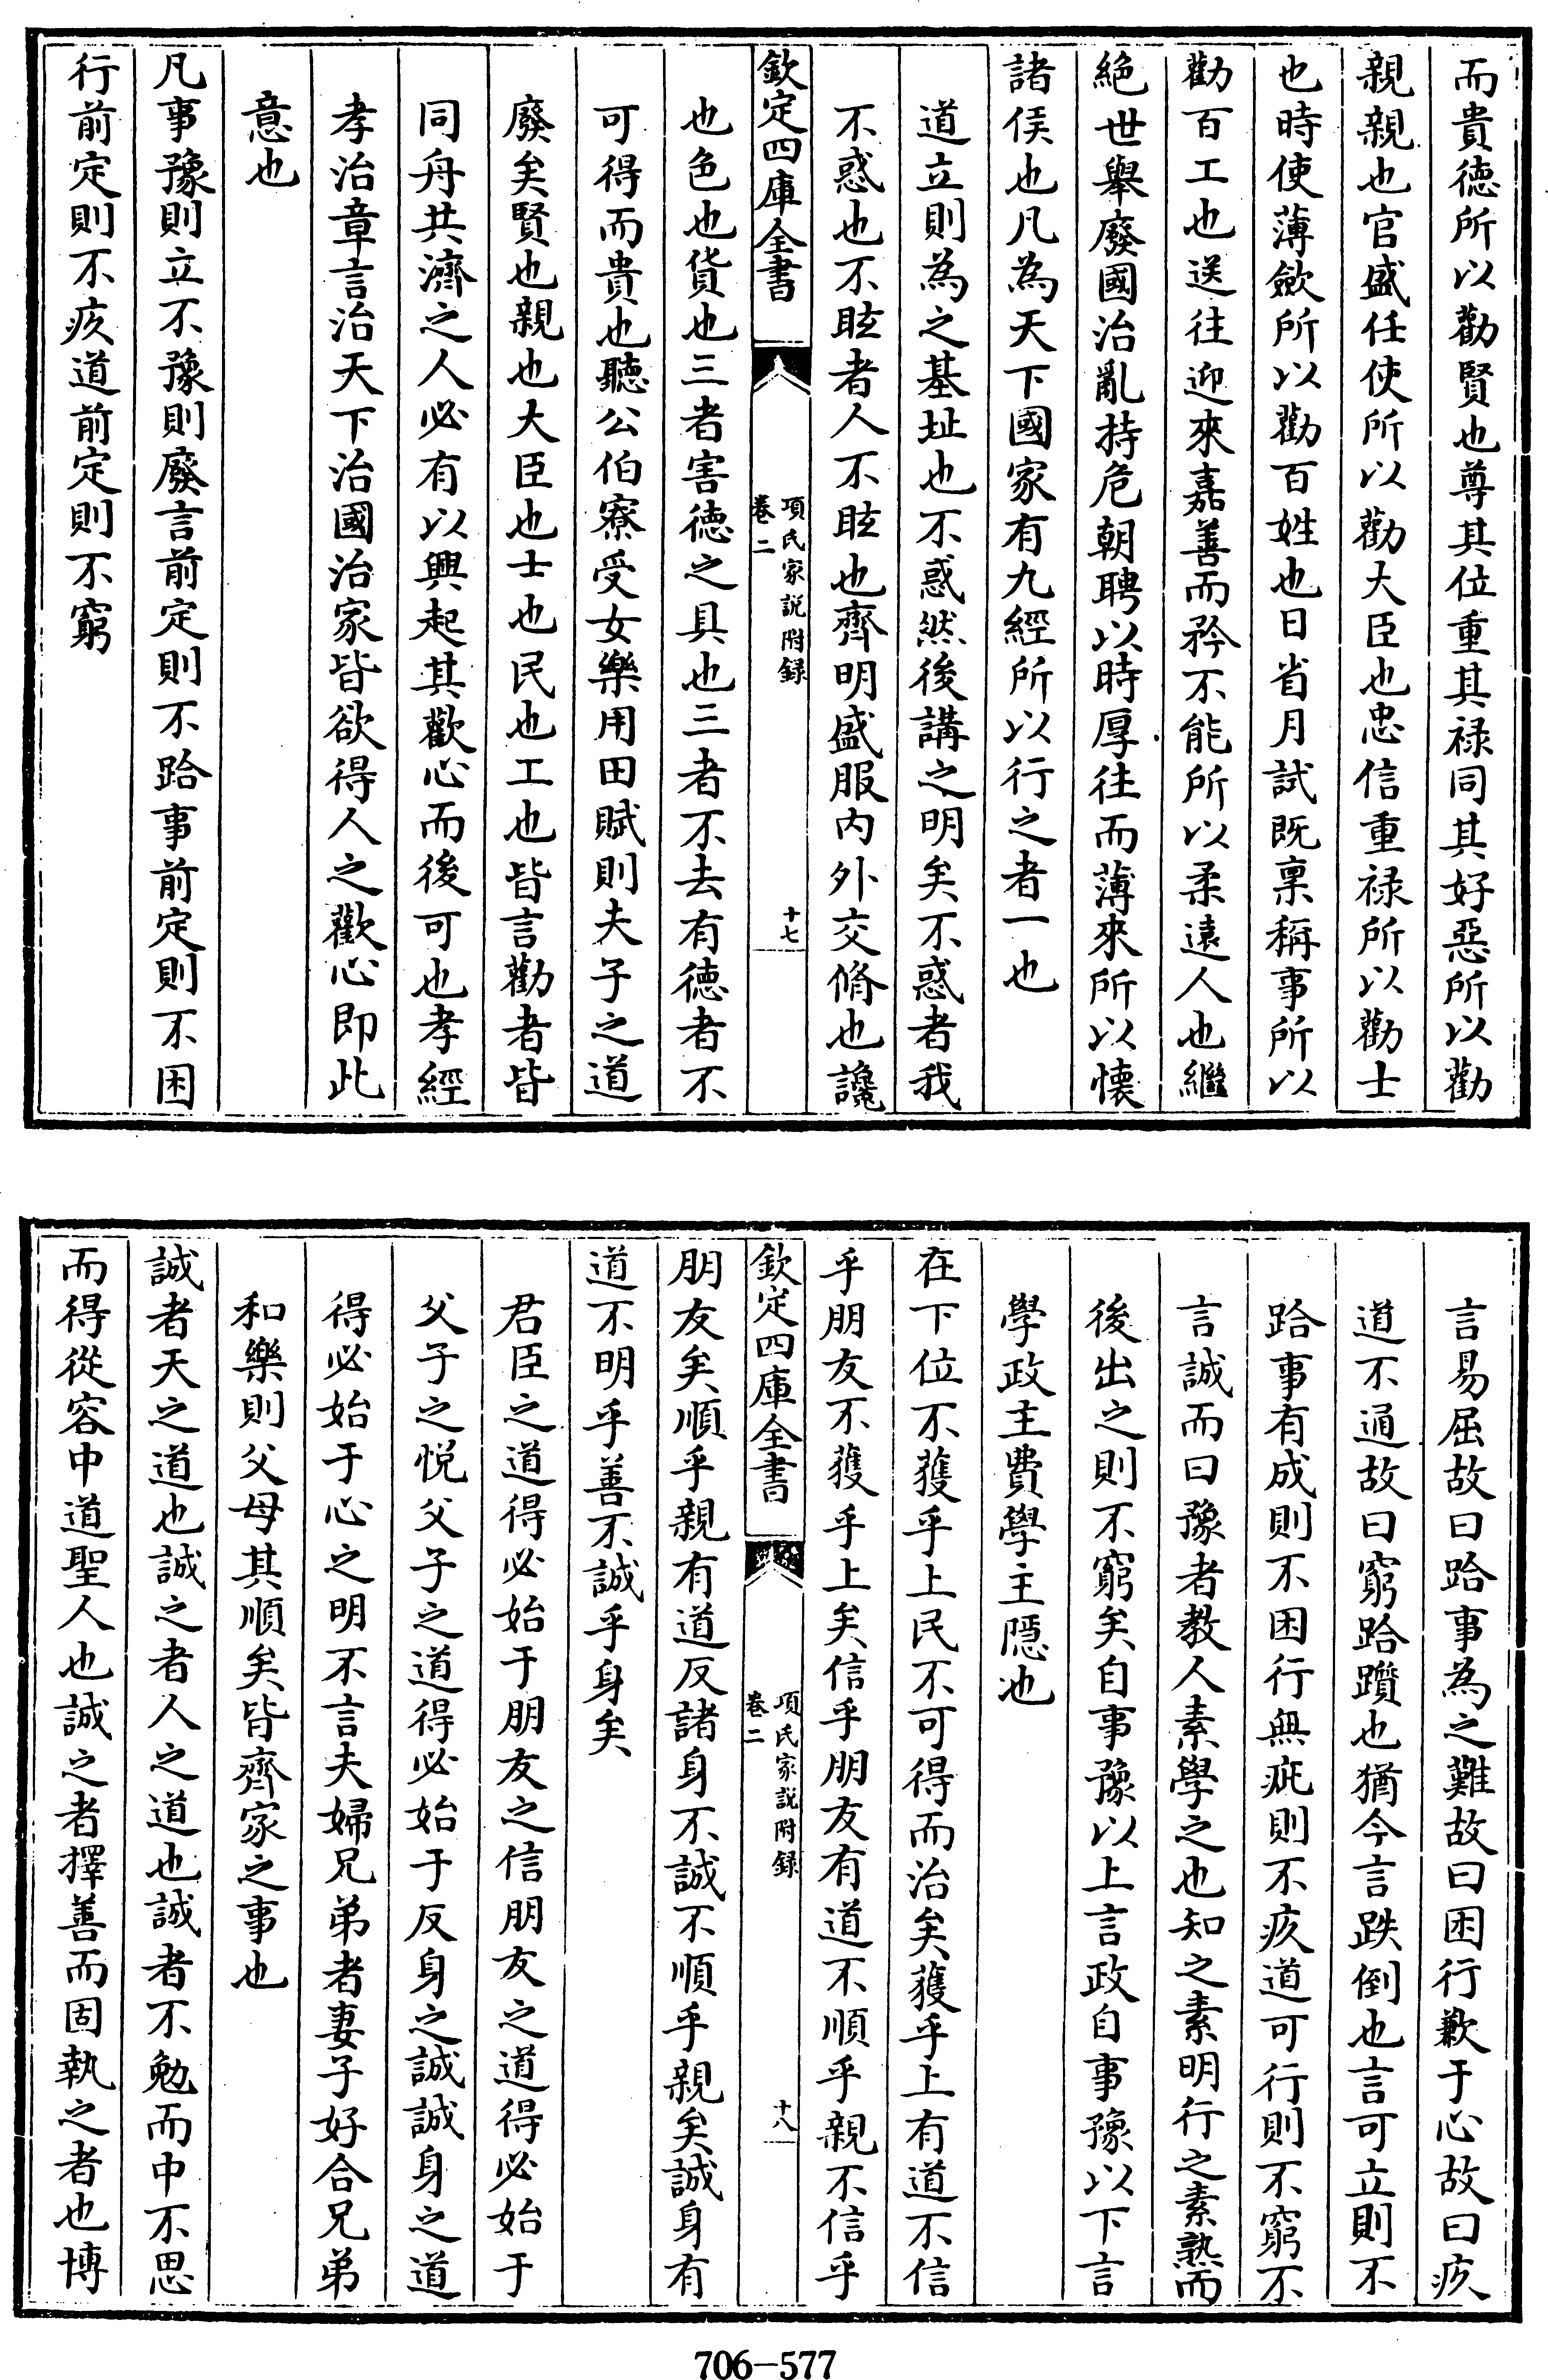 而貴徳所以勸賢也尊其位重其禄同其好惡所以勸
親親也官盛任使所以勸大臣也忠信重禄所以勸士
也時使薄斂所以勸百姓也日省月試既稟稱事所以
勸百工也送往迎來嘉善而矜不能所以柔逺人也繼
絶世舉廢國治亂持危朝聘以時厚往而薄來所以懐
諸侯也凡為天下國家有九經所以行之者一也
道立則為之基址也不惑然後講之明矣不惑者我
不惑也不眩者人不眩也齊明盛服内外交脩也讒
欽定四庫全書
項氏家説附録
卷二
十七
也色也貨也三者害徳之具也三者不去有徳者不
可得而貴也聽公伯寮受女樂用田賦則夫子之道
廢矣賢也親也大臣也士也民也工也皆言勸者皆
同舟共濟之人必有以興起其歡心而後可也孝經
孝治章言治天下治國治家皆欲得人之歡心即此
意也
凡事豫則立不豫則廢言前定則不跲事前定則不困
行前定則不疚道前定則不窮
言易屈故曰跲事為之難故曰困行歉于心故曰疚
道不通故曰窮跲躓也猶今言跌倒也言可立則不
跲事有成則不困行無疵則不疚道可行則不窮不
言誠而曰豫者教人素學之也知之素明行之素熟而
後出之則不窮矣自事豫以上言政自事豫以下言
學政主費學主隠也
在下位不獲乎上民不可得而治矣獲乎上有道不信
乎朋友不獲乎上矣信乎朋友有道不順乎親不信乎
欽定四庫全書
項氏家説附録
卷二
十八
朋友矣順乎親有道反諸身不誠不順乎親矣誠身有
道不明乎善不誠乎身矣
君臣之道得必始于朋友之信朋友之道得必始于
父子之悦父子之道得必始于反身之誠誠身之道
得必始于心之明不言夫婦兄弟者妻子好合兄弟
和樂則父母其順矣皆齊家之事也
誠者天之道也誠之者人之道也誠者不勉而中不思
而得從容中道聖人也誠之者擇善而固執之者也博
706-577